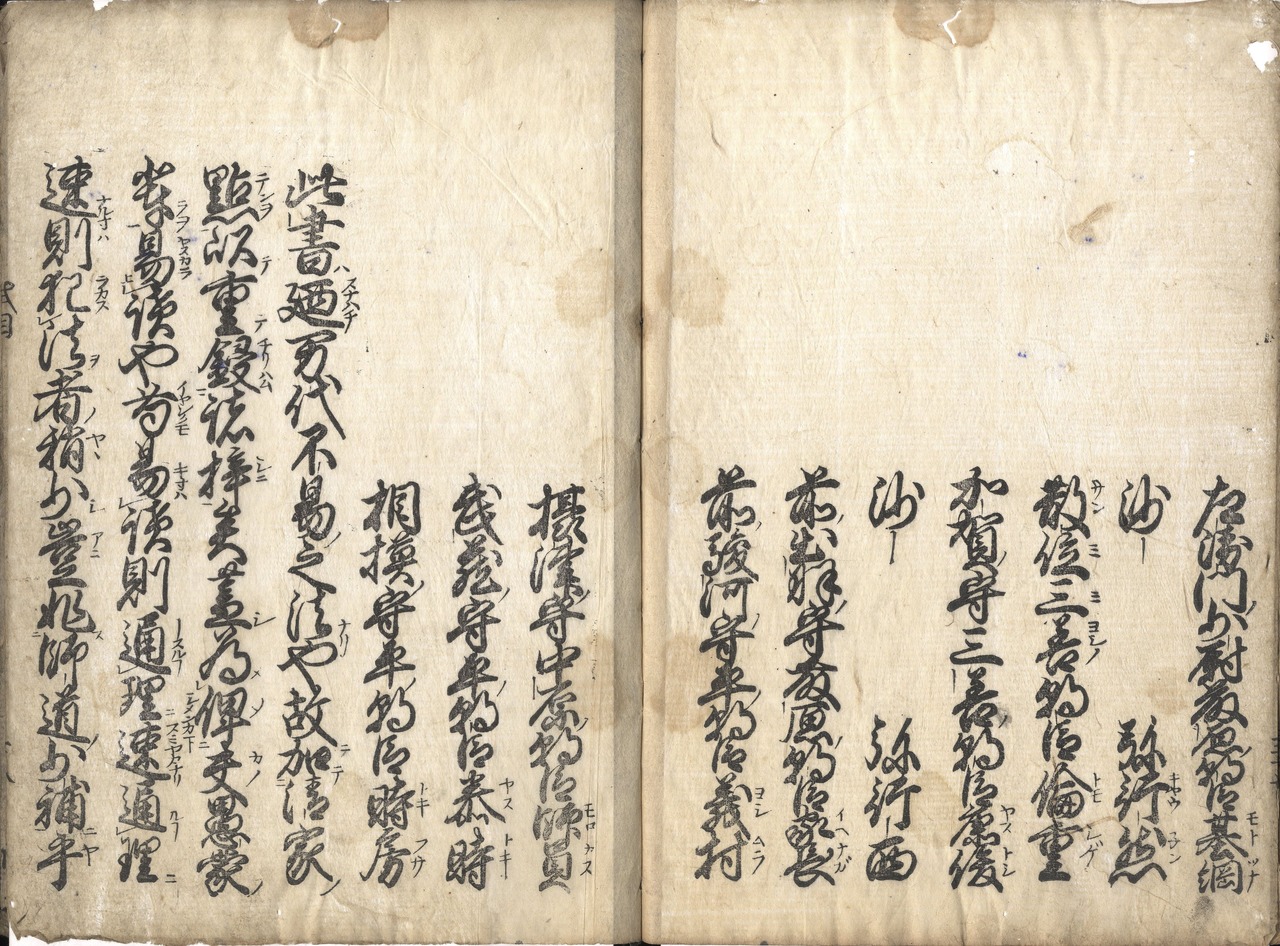 左衛門少尉藤原朝臣基綱
沙｜　弥行然
散位三善朝臣倫重
加賀守三善朝臣康俊
沙｜　弥行西
前出羽守藤原朝臣家長
前駿河守平朝臣義村
摂津守中原朝臣師員
武蔵守平朝臣泰時
相模守平朝臣時房
此書廼万代不易之法也故加清家
點以重鋟諸梓矣蓋為俾夫愚蒙
輩易読也苟易読則通理速通理
速則犯法者稍少豈非師道少補乎